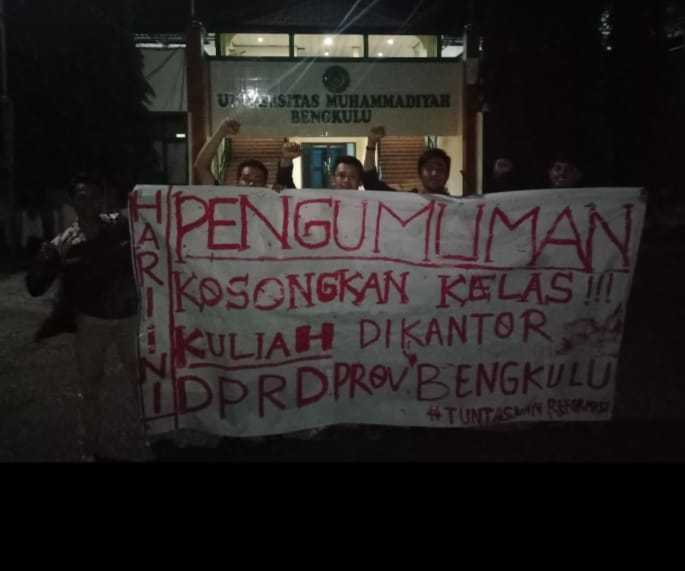 UNIVERSITAS MUHAMMADIYAH
BENGKULU
HARI INI
PENGUMUMAN
KOSONGKAN KELAS!!!
KULIAH DIKANTOR
DPRD PROV BENGKULU
#TUNTASKAN REFORMASI